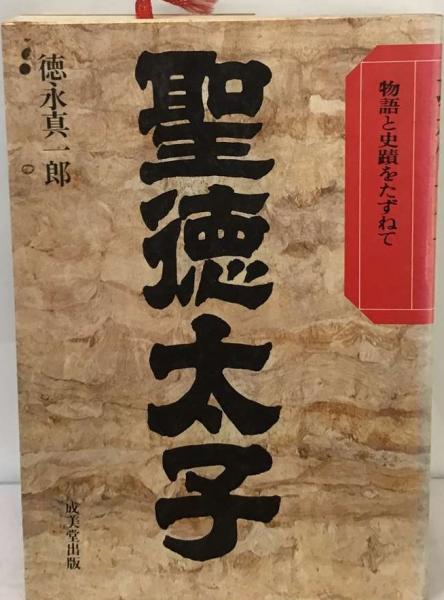 物語と史蹟をたずねて
聖徳太子
徳永真一郎
成美堂出版